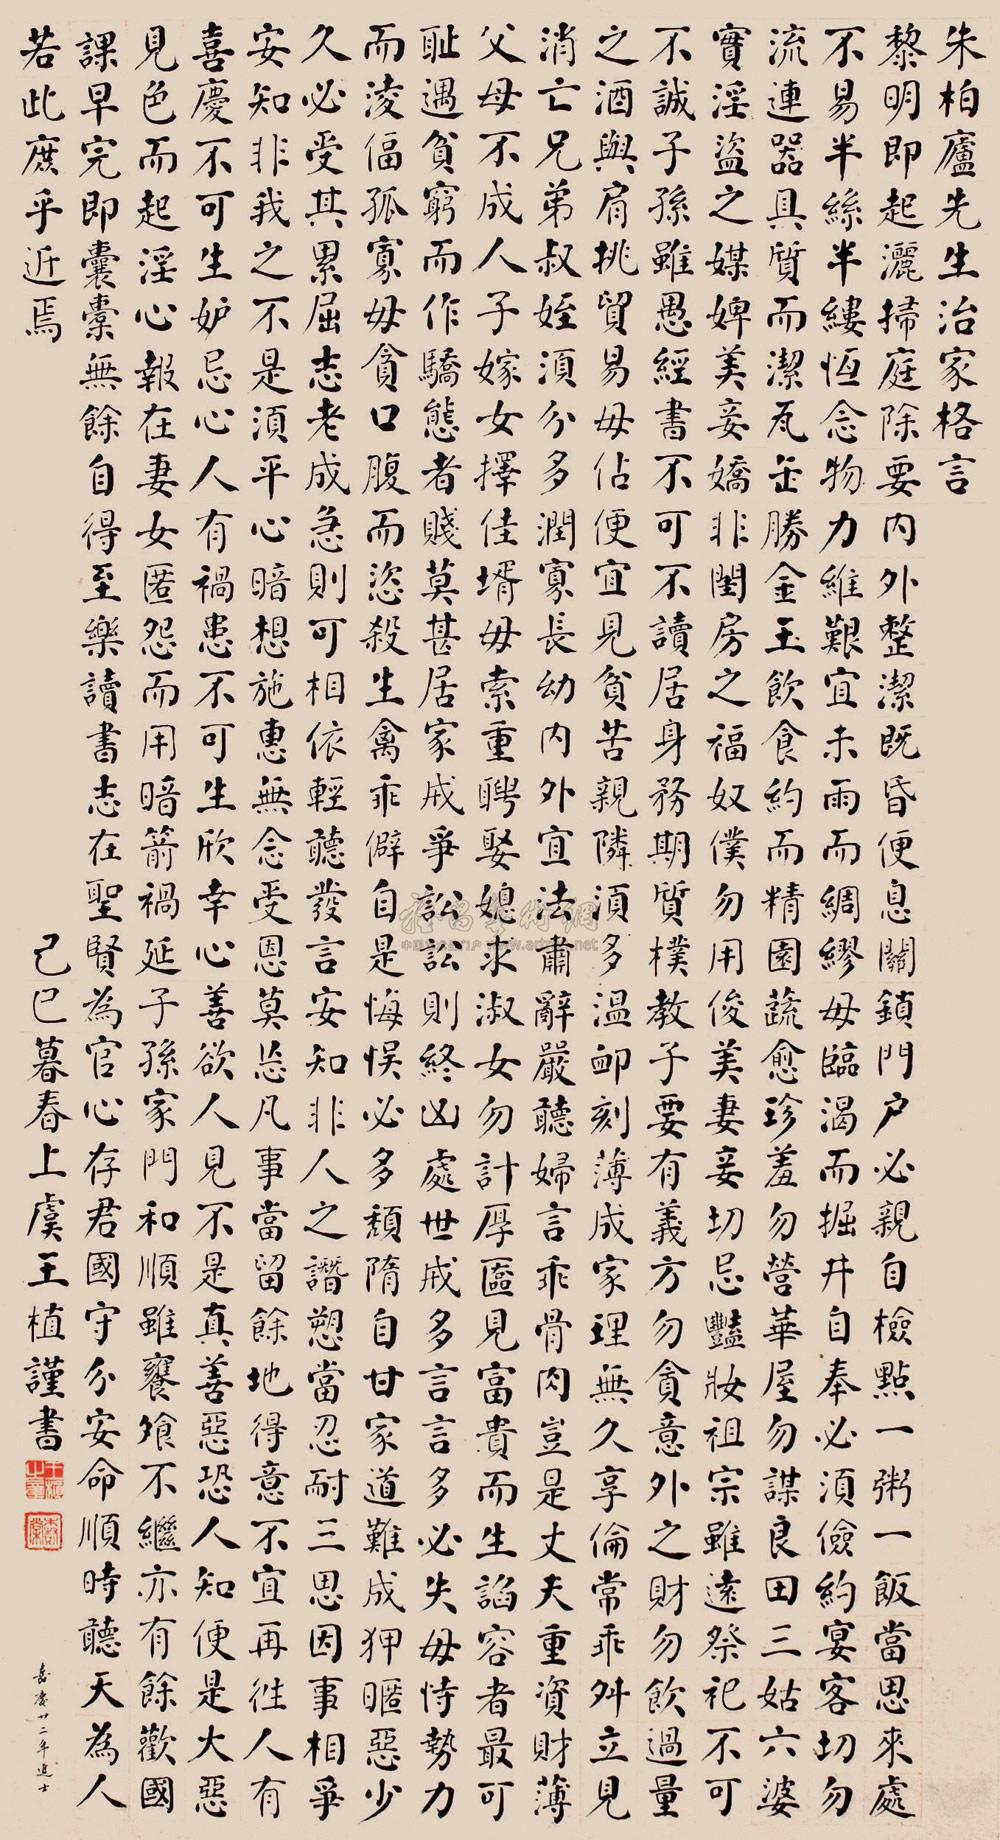 朱柏廬先生治家格言
黎明即起灑掃庭除要內外整潔既昏便息關鎖門户必親自檢點一粥一飯當思來處
不易半絲半縷恆念物力維艱宜未雨而綢繆毋臨渴而掘井自奉必須儉約宴客切勿
流連器具質而潔瓦缶勝金玉飲食約而精園蔬愈珍羞勿營華屋勿謀良田三姑六婆
實淫盜之媒婢美妾嬌非閨房之福奴僕勿用俊美妻妾切忌豔妝祖宗雖遠祭祀不可
不誠子孫雖愚經書不可不讀居身務期質樸教子要有義方勿貪意外之財勿飲過量
之酒與肩挑貿易毋佔便宜見貧苦親隣須多溫卹刻薄成家理無久享倫常乖舛立見
消亡兄弟叔姪須分多潤寡長幼內外宜法肅辭嚴聽婦言乖骨肉豈是丈夫重資財薄
父母不成人子嫁女擇佳壻毋索重聘娶媳求淑女勿計厚匳見富貴而生諂容者最可
恥遇貧窮而作驕態者賤莫甚居家戒爭訟訟則終凶處世戒多言言多必失毋恃勢力
而淩偪孤寡毋貪口腹而恣殺生禽乖僻自是悔悞必多頹隋自甘家道難成狎暱惡少
久必受其累屈志老成急則可相依輕聽發言安知非人之譖愬當忍耐三思因事相爭
安知非我之不是須平心暗想施惠無念受恩莫忘凡事當留餘地得意不宜再徃人有
喜慶不可生妒忌心人有禍患不可生欣幸心善欲人見不是真善惡恐人知便是大惡
見色而起淫心報在妻女匿怨而用暗箭禍延子孫家門和順雖饔飧不繼亦有餘歡國
課早完即囊橐無餘自得至樂讀書志在聖賢為官心存君國守分安命順時聽天為人
若此庶乎近焉
己巳暮春上虞王植謹書
嘉慶廿二年進士